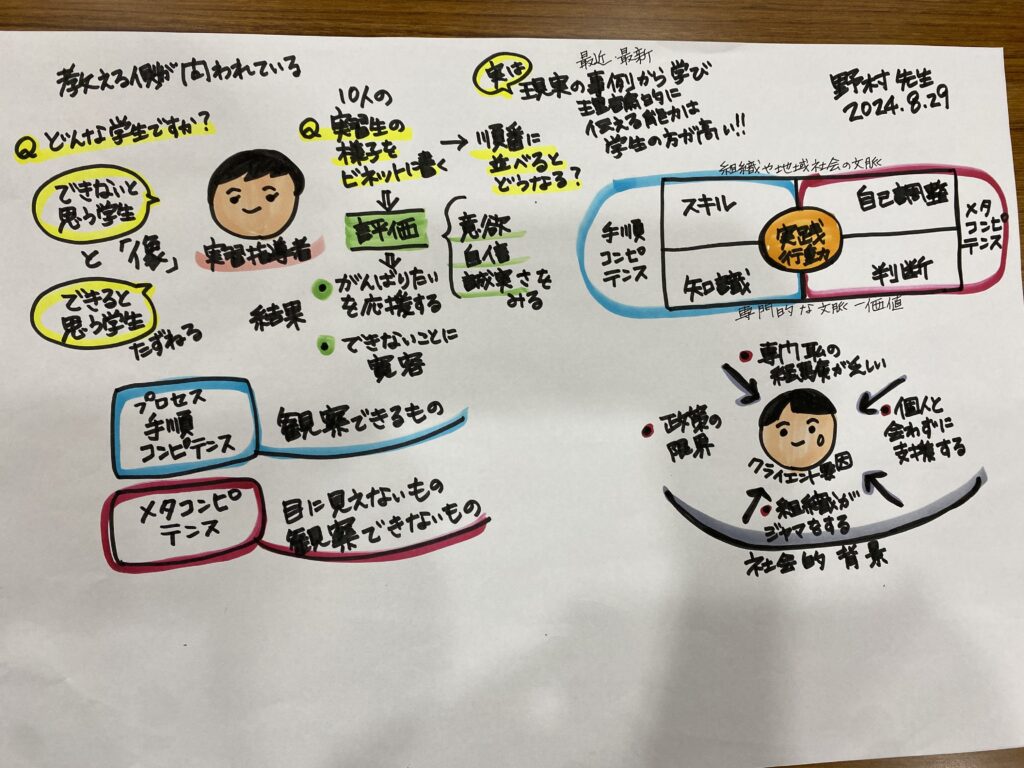 教える側が問われている
Q どんな学生ですか？
できないと
思う学生
と「像」
できると
思う学生
たずねる
実習指導者
10人の
Q 実習生の
様子を
ビネットに書く
→ 順番に
並べると
どうなる？
評価
意欲
自信
誠実さを
みる
結果
がんばりたい
を応援する
できないことに
寛容
実は
最近・最新
現実の事例から学び
伝える
学生の方が高い!!
野村先生
2024.8.29
組織や地域社会の文脈
手順
コンピ
テンス
スキル
知識
実践
行動力
自己調整
判断
メタ
コンピ
テンス
専門的な文脈－価値
プロセス
手順
コンピテンス
観察できるもの
メタコンピ
テンス
目に見えないもの
観察できないもの
専門職の
経験が乏しい
政策の
限界
個人と
会わずに
支援する
クライエント要因
組織が
ジャマをする
社会的背景